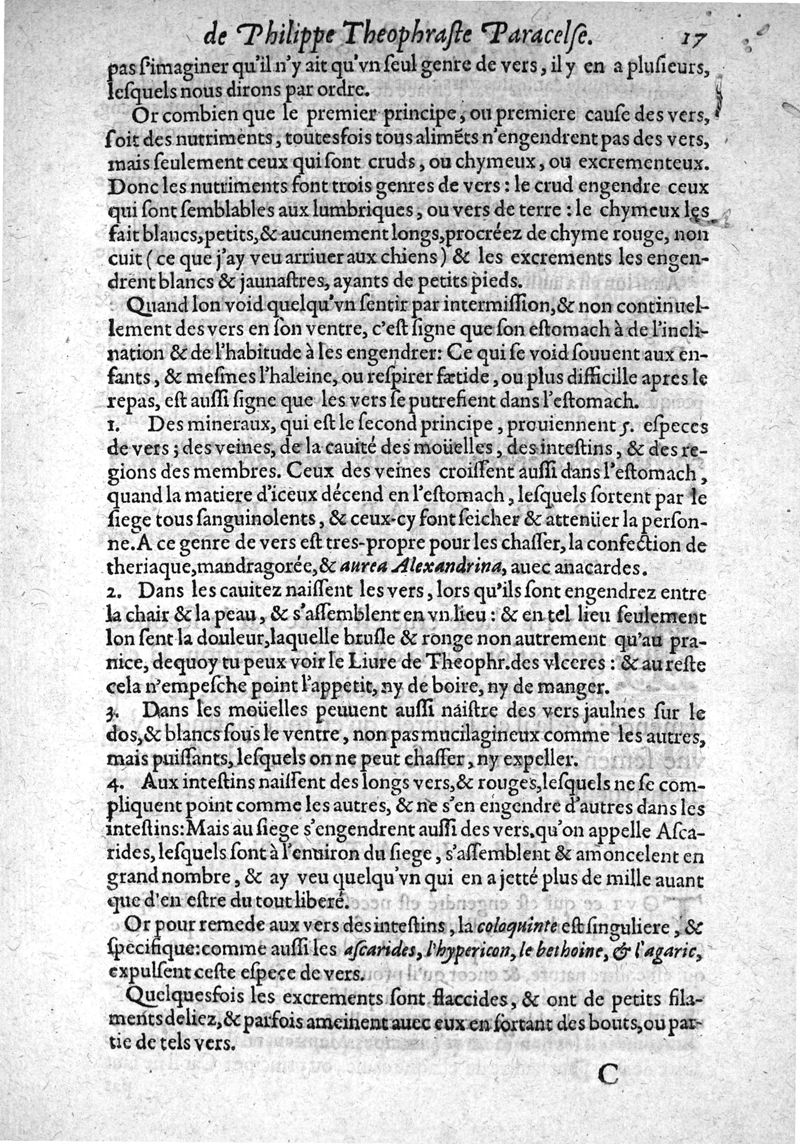 de Philippe Theophraſte Paracelſe. 17
pas s'imaginer qu'il n'y ait qu'vn ſeul genre de vers, il y en a pluſieurs,
leſquels nous dirons par ordre.
Or combien que le premier principe, ou premiere cauſe des vers,
ſoit des nutriments, toutesfois tous alimẽts n'engendrent pas des vers,
mais ſeulement ceux qui ſont cruds, ou chymeux, ou excrementeux.
Donc les nutriments font trois genres de vers : le crud engendre ceux
qui ſont ſemblables aux lumbriques, ou vers de terre : le chymeux les
fait blancs, petits, & aucunement longs, procréez de chyme rouge, non
cuit (ce que j'ay veu arriuer aux chiens) & les excrements les engen-
drent blancs & jaunaſtres, ayants de petits pieds.
Quand lon void quelqu'vn ſentir par intermiſſion, & non continuel-
lement des vers en ſon ventre, c'eſt ſigne que ſon eſtomach à de l'incli-
nation & de l'habitude à les engendrer: Ce qui ſe void ſouuent aux en-
fants, & meſmes l'haleine, ou reſpirer fætide, ou plus difficille apres le
repas, eſt auſſi ſigne que les vers ſe putrefient dans l'eſtomach.
1. Des mineraux, qui eſt le ſecond principe, prouiennent 5. eſpeces
de vers ; des veines, de la cauité des moüelles, des inteſtins, & des re-
gions des membres. Ceux des veines croiſſent auſſi dans l'eſtomach,
quand la matiere d'iceux décend en l'eſtomach, leſquels ſortent par le
ſiege tous ſanguinolents, & ceux-cy font ſeicher & attenüer la perſon-
ne. A ce genre de vers eſt tres-propre pour les chaſſer, la confection de
theriaque, mandragorée, & aurea Alexandrina, auec anacardes.
2. Dans les cauitez naiſſent les vers, lors qu'ils ſont engendrez entre
la chair & la peau, & s'aſſemblent en vn lieu : & en tel lieu ſeulement
lon ſent la douleur, laquelle bruſle & ronge non autrement qu'au pra-
nice, dequoy tu peux voir le Liure de Theophr. des vlceres : & au reſte
cela n'empeſche point l'appetit, ny de boire, ny de manger.
3. Dans les moüelles peuuent auſſi naiſtre des vers jaulnes ſur le
dos, & blancs ſous le ventre, non pas mucilagineux comme les autres,
mais puiſſants, leſquels on ne peut chaſſer, ny expeller.
4. Aux inteſtins naiſſent des longs vers, & rouges, leſquels ne ſe com-
pliquent point comme les autres, & ne s'en engendre d'autres dans les
inteſtins: Mais au ſiege s'engendrent auſſi des vers, qu'on appelle Aſca-
rides, leſquels ſont à l'enuiron du ſiege, s'aſſemblent & amoncelent en
grand nombre, & ay veu quelqu'vn qui en a jetté plus de mille auant
que d'en eſtre du tout liberé.
Or pour remede aux vers des inteſtins, la coloquinte eſt ſinguliere, &
ſpecifique: comme auſſi les aſcarides, l'hypericon, le bethoine, & l'agaric,
expulſent ceſte eſpece de vers.
Quelquesfois les excrements ſont flaccides, & ont de petits fila-
ments deliez, & parfois ameinent auec eux en ſortant des bouts, ou par-
tie de tels vers.
C